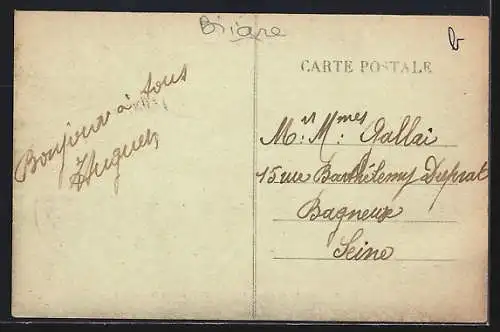 Briare
b
CARTE POSTALE
Bonjour à tous
Huguen
Mr. Mmes Gallai
15 rue Barthélemy Duprat
Bagneux
Seine